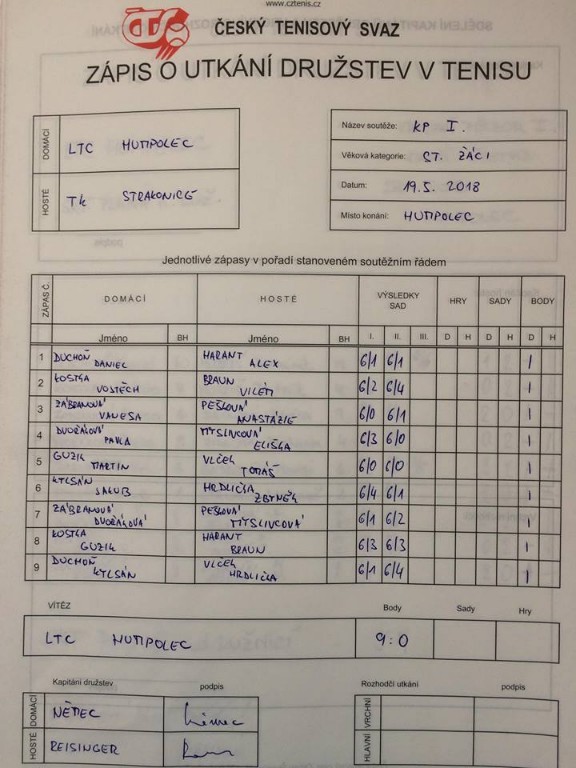 www.cztenis.cz
ČTS ČESKÝ TENISOVÝ SVAZ
ZÁPIS O UTKÁNÍ DRUŽSTEV V TENISU
DOMÁCÍ LTC HUMPOLEC
HOSTÉ TK STRAKONICE
Název soutěže: KP I.
Věková kategorie: ST. ŽÁCI
Datum: 19.5. 2018
Místo konání: HUMPOLEC
Jednotlivé zápasy v pořadí stanoveném soutěžním řádem
ZÁPAS Č. DOMÁCÍ HOSTÉ VÝSLEDKY SAD HRY SADY BODY
Jméno BH Jméno BH I. II. III. D H D H D H
1 DUCHOŇ DANIEL HARANT ALEX 6/1 6/1 1
2 KOSTKA VOJTĚCH BRAUN VILÉM 6/2 6/4 1
3 ZÁBRANOVÁ VANESA PEŠLOVÁ ANASTÁZIE 6/0 6/1 1
4 DVOŘÁKOVÁ PAVLA MYSLIVCOVÁ ELIŠKA 6/3 6/0 1
5 GUZIK MARTIN VLČEK TOMÁŠ 6/0 6/0 1
6 KYLSÁN JAKUB HRDLIČKA ZBYNĚK 6/4 6/1 1
7 ZÁBRANOVÁ DVOŘÁKOVÁ PEŠLOVÁ MYSLIVCOVÁ 6/1 6/2 1
8 KOSTKA GUZIK HARANT BRAUN 6/3 6/3 1
9 DUCHOŇ KYLSÁN VLČEK HRDLIČKA 6/1 6/4 1
VÍTĚZ Body Sady Hry
LTC HUMPOLEC 9:0
Kapitání družstev podpis Rozhodčí utkání podpis
DOMÁCÍ NĚMEC Němec VRCHNÍ
HOSTÉ REISINGER HLAVNÍ